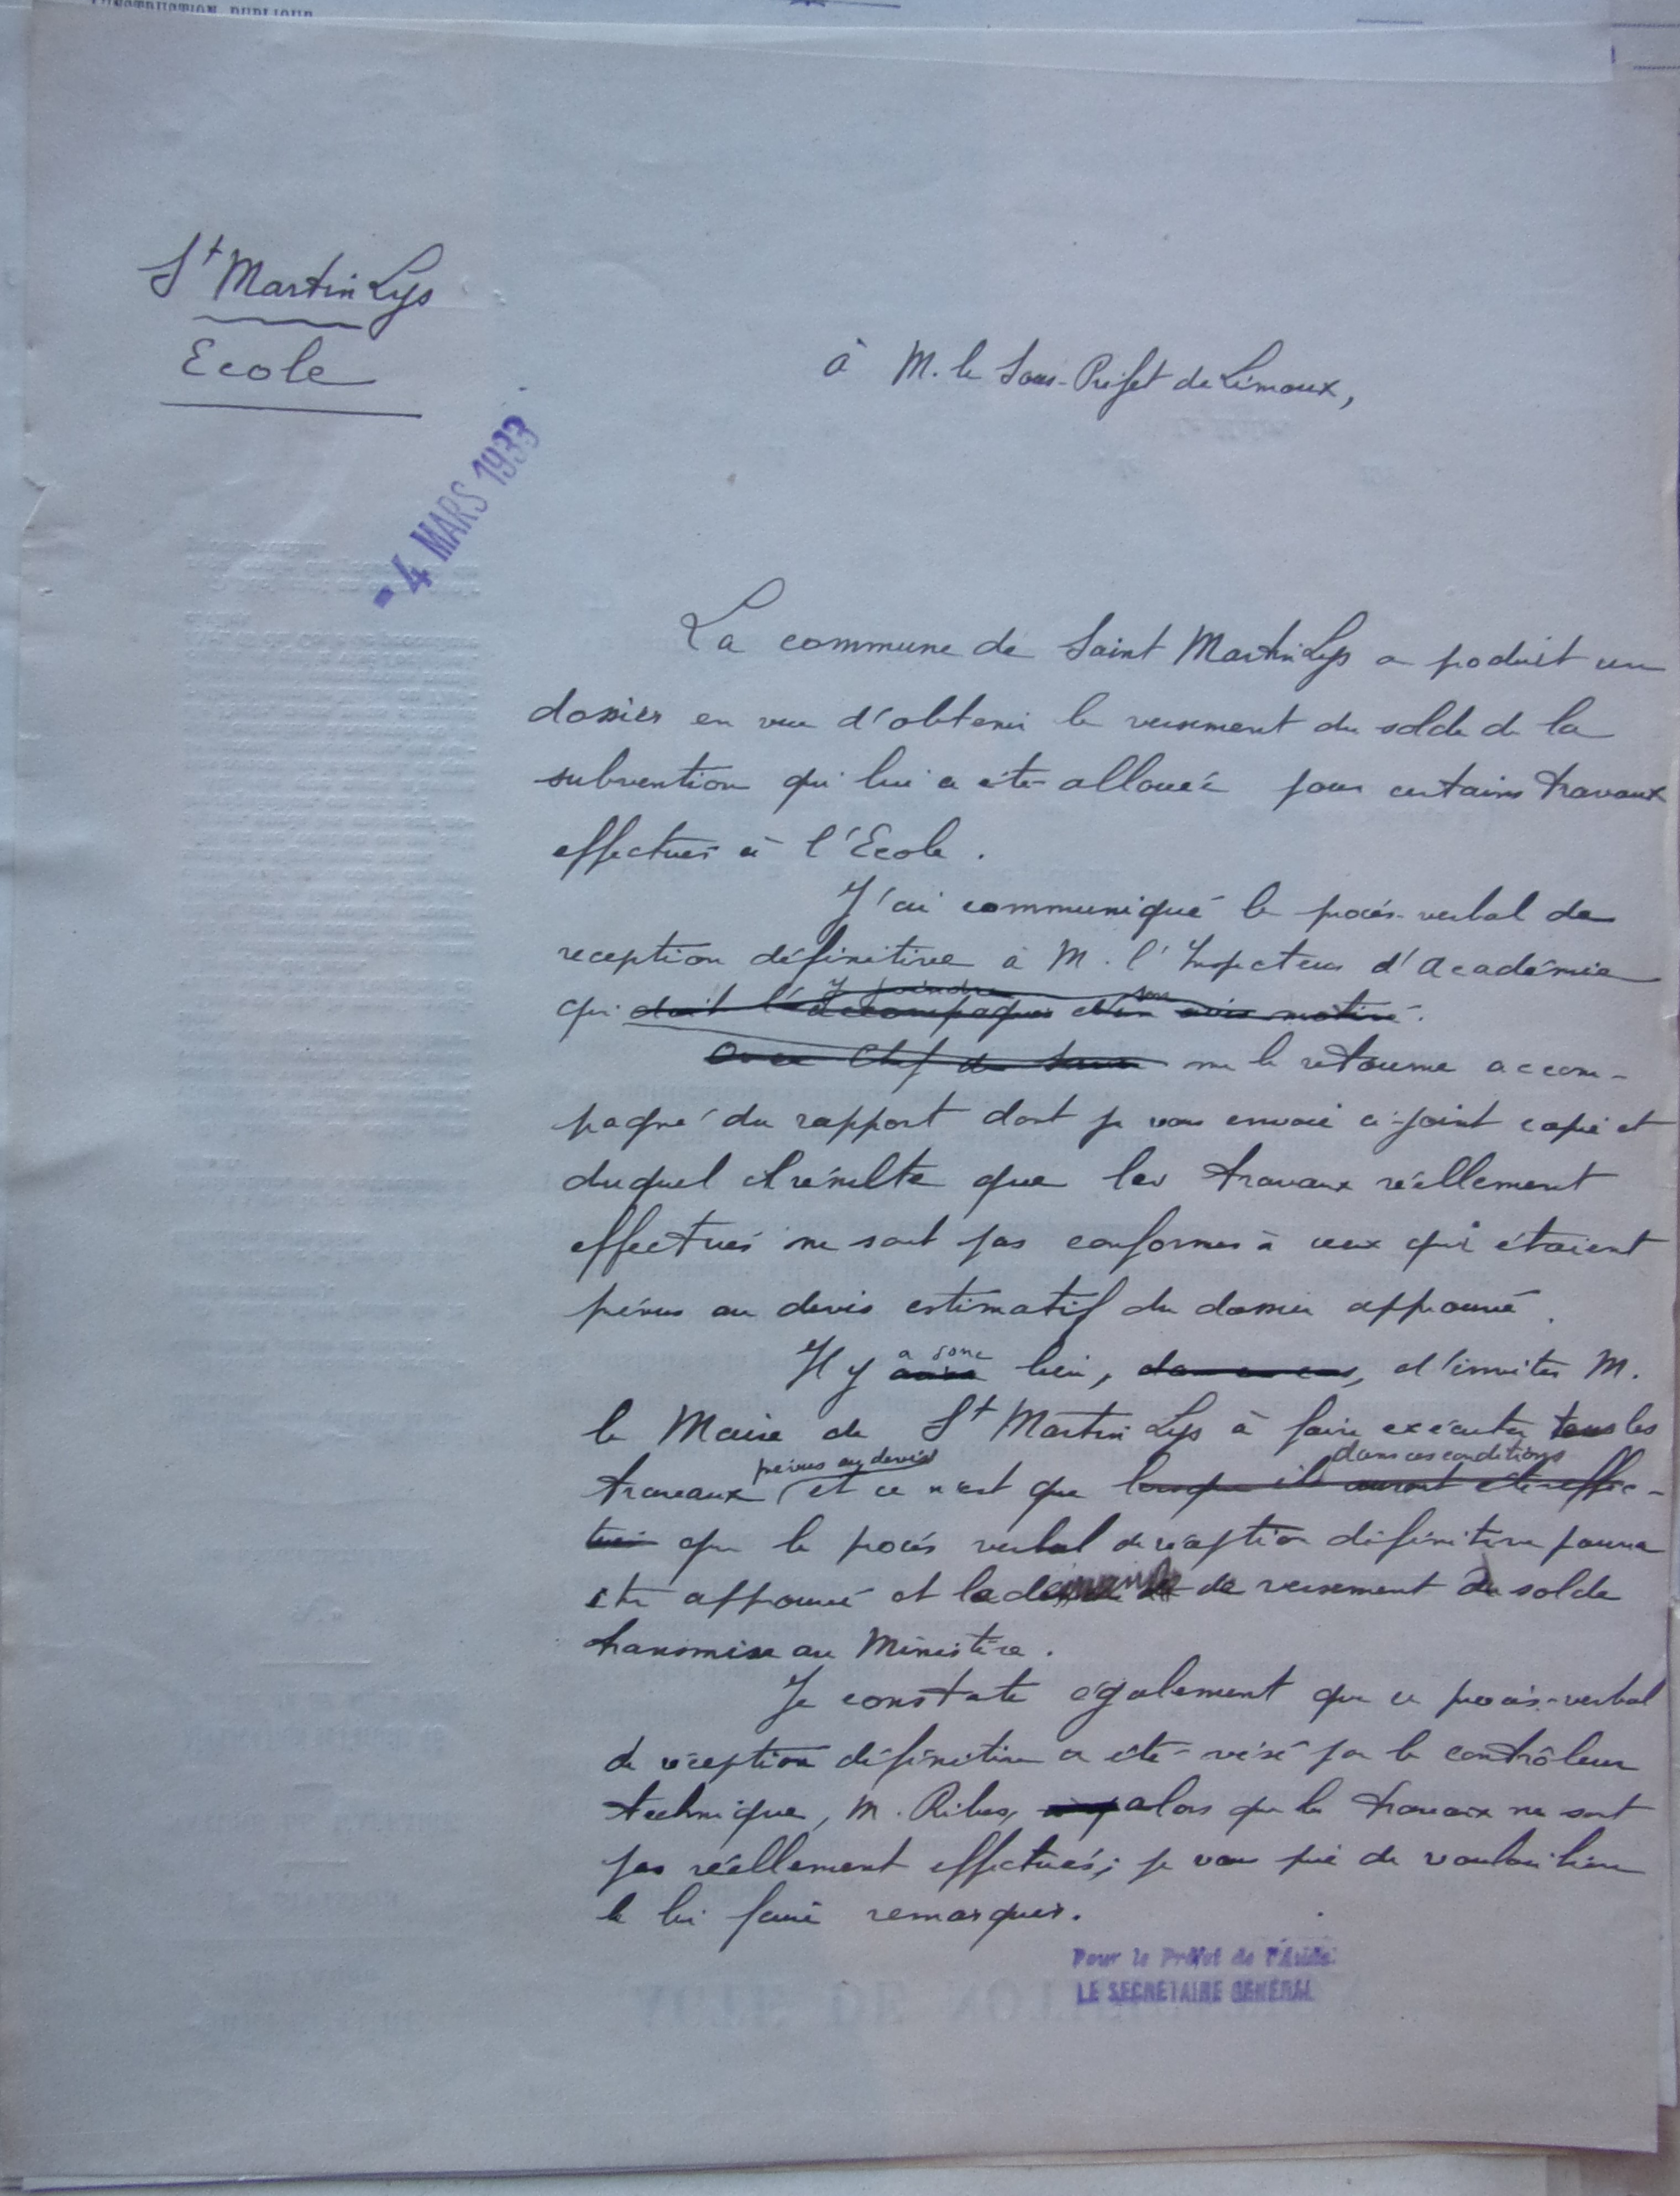 INSTRUCTION PUBLIQUE
St Martin Lys
Ecole
à M. le Sous-Préfet de Limoux,
- 4 MARS 1933
La commune de Saint Martin Lys a produit un
dossier en vue d'obtenir le versement du solde de la
subvention qui lui a été allouée pour certains travaux
effectués à l'Ecole.
J'ai communiqué le procès-verbal de
reception définitive à M. l'Inspecteur d'Académie
y joindre son
qui doit l'accompagner d'un avis motivé.
me le retourne accom-
pagné du rapport dont je vous envoie ci-joint copie et
duquel il résulte que les travaux réellement
effectués ne sont pas conformes à ceux qui étaient
prévus au devis estimatif du dossier approuvé.
a donc
Il y aura lieu, dans ce cas, d'inviter M.
le Maire de St Martin Lys à faire exécuter tous les
prévus au devis dans ces conditions
travaux et ce n'est que lorsque ils auront été effec-
tués que le procès verbal de réception définitive pourra
être approuvé et la demande de versement du solde
transmise au Ministère.
Je constate également que ce procès-verbal
de réception définitive a été visé par le contrôleur
technique, M. Ribes, alors que les travaux ne sont
pas réellement effectués; je vous prie de vouloir bien
le lui faire remarquer.
Pour le Préfet de l'Aude:
LE SECRÉTAIRE GÉNÉRAL